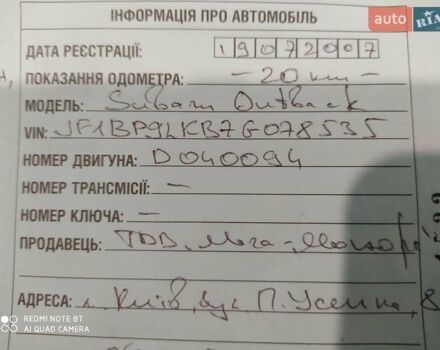 auto RIA
ІНФОРМАЦІЯ ПРО АВТОМОБІЛЬ
ДАТА РЕЄСТРАЦІЇ: 19072007
ПОКАЗАННЯ ОДОМЕТРА: - 20 km -
МОДЕЛЬ: Subaru Outback
VIN: JF1BP9LKB7G078535
НОМЕР ДВИГУНА: D040094
НОМЕР ТРАНСМІСІЇ: -
НОМЕР КЛЮЧА: -
ПРОДАВЕЦЬ: ТДВ, Мега-Моторс
АДРЕСА: м. Київ, вул. П. Усенка, 8
REDMI NOTE 8T
AI QUAD CAMERA